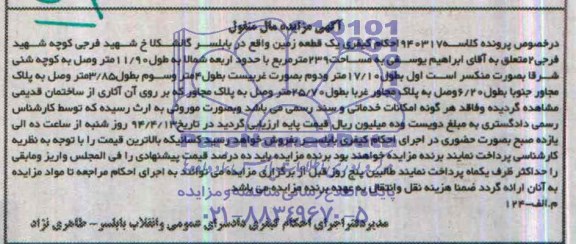 آگهی مزایده مال منقول
درخصوص پرونده کلاسه ۹۴۰۳۱۷ احکام کیفری یک قطعه زمین واقع در بابلسر خ شهید فرجی کوچه شهید
فرجی۲متعلق به آقای ابراهیم به مساحت۲۳۹مترمربع با حدود اربعه شمالا به طول ۱۱/۹۰متر وصل به کوچه شنی
شرقا بصورت منکسر است اول بطول ۱۷/۱۰متر ودوم بصورت غربیست بطول۴متر وسوم بطول۳/۸۵متر وصل به پلاک
مجاور جنوبا بطول۶/۲۰وصل به پلاک مجاور غربا بطول۲۵/۷۰متر وصل به پلاک مجاور که بر روی آن آثاری از ساختمان قدیمی
مشاهده گردیده وفاقد هر گونه امکانات خدماتی و سند رسمی می باشد وبصورت موروثی به ارث رسیده که توسط کارشناس
رسمی دادگستری به مبلغ دویست وده میلیون ریال قیمت پایه ارزیابی گردید در تاریخ۹۴/۴/۱۳ روز شنبه از ساعت ده الی
یازده صبح بصورت حضوری در اجرای احکام کیفری بابلسر بفروش خواهد رسید کسانیکه بالاترین قیمت را با توجه به نظریه
کارشناسی پرداخت نمایند برنده مزایده خواهند بود برنده مزایده باید ده درصد قیمت پیشنهادی را فی المجلس واریز ومابقی
را حداکثر ظرف یکماه پرداخت نمایند طالبین پنج روز قبل از برگزاری مزایده به اجرای احکام مراجعه تا مواد مزایده
به آنان ارائه گردد ضمنا هزینه نقل وانتقال به عهده برنده مزایده می باشد
م.الف-۱۲۴
مدیر دفتر اجرای احکام کیفری دادسرای عمومی وانقلاب بابلسر- طاهری نژاد
پایگاه اطلاع رسانی مناقصه و مزایده
۰۲۱-۸۸۳۴۹۶۷۰-۵